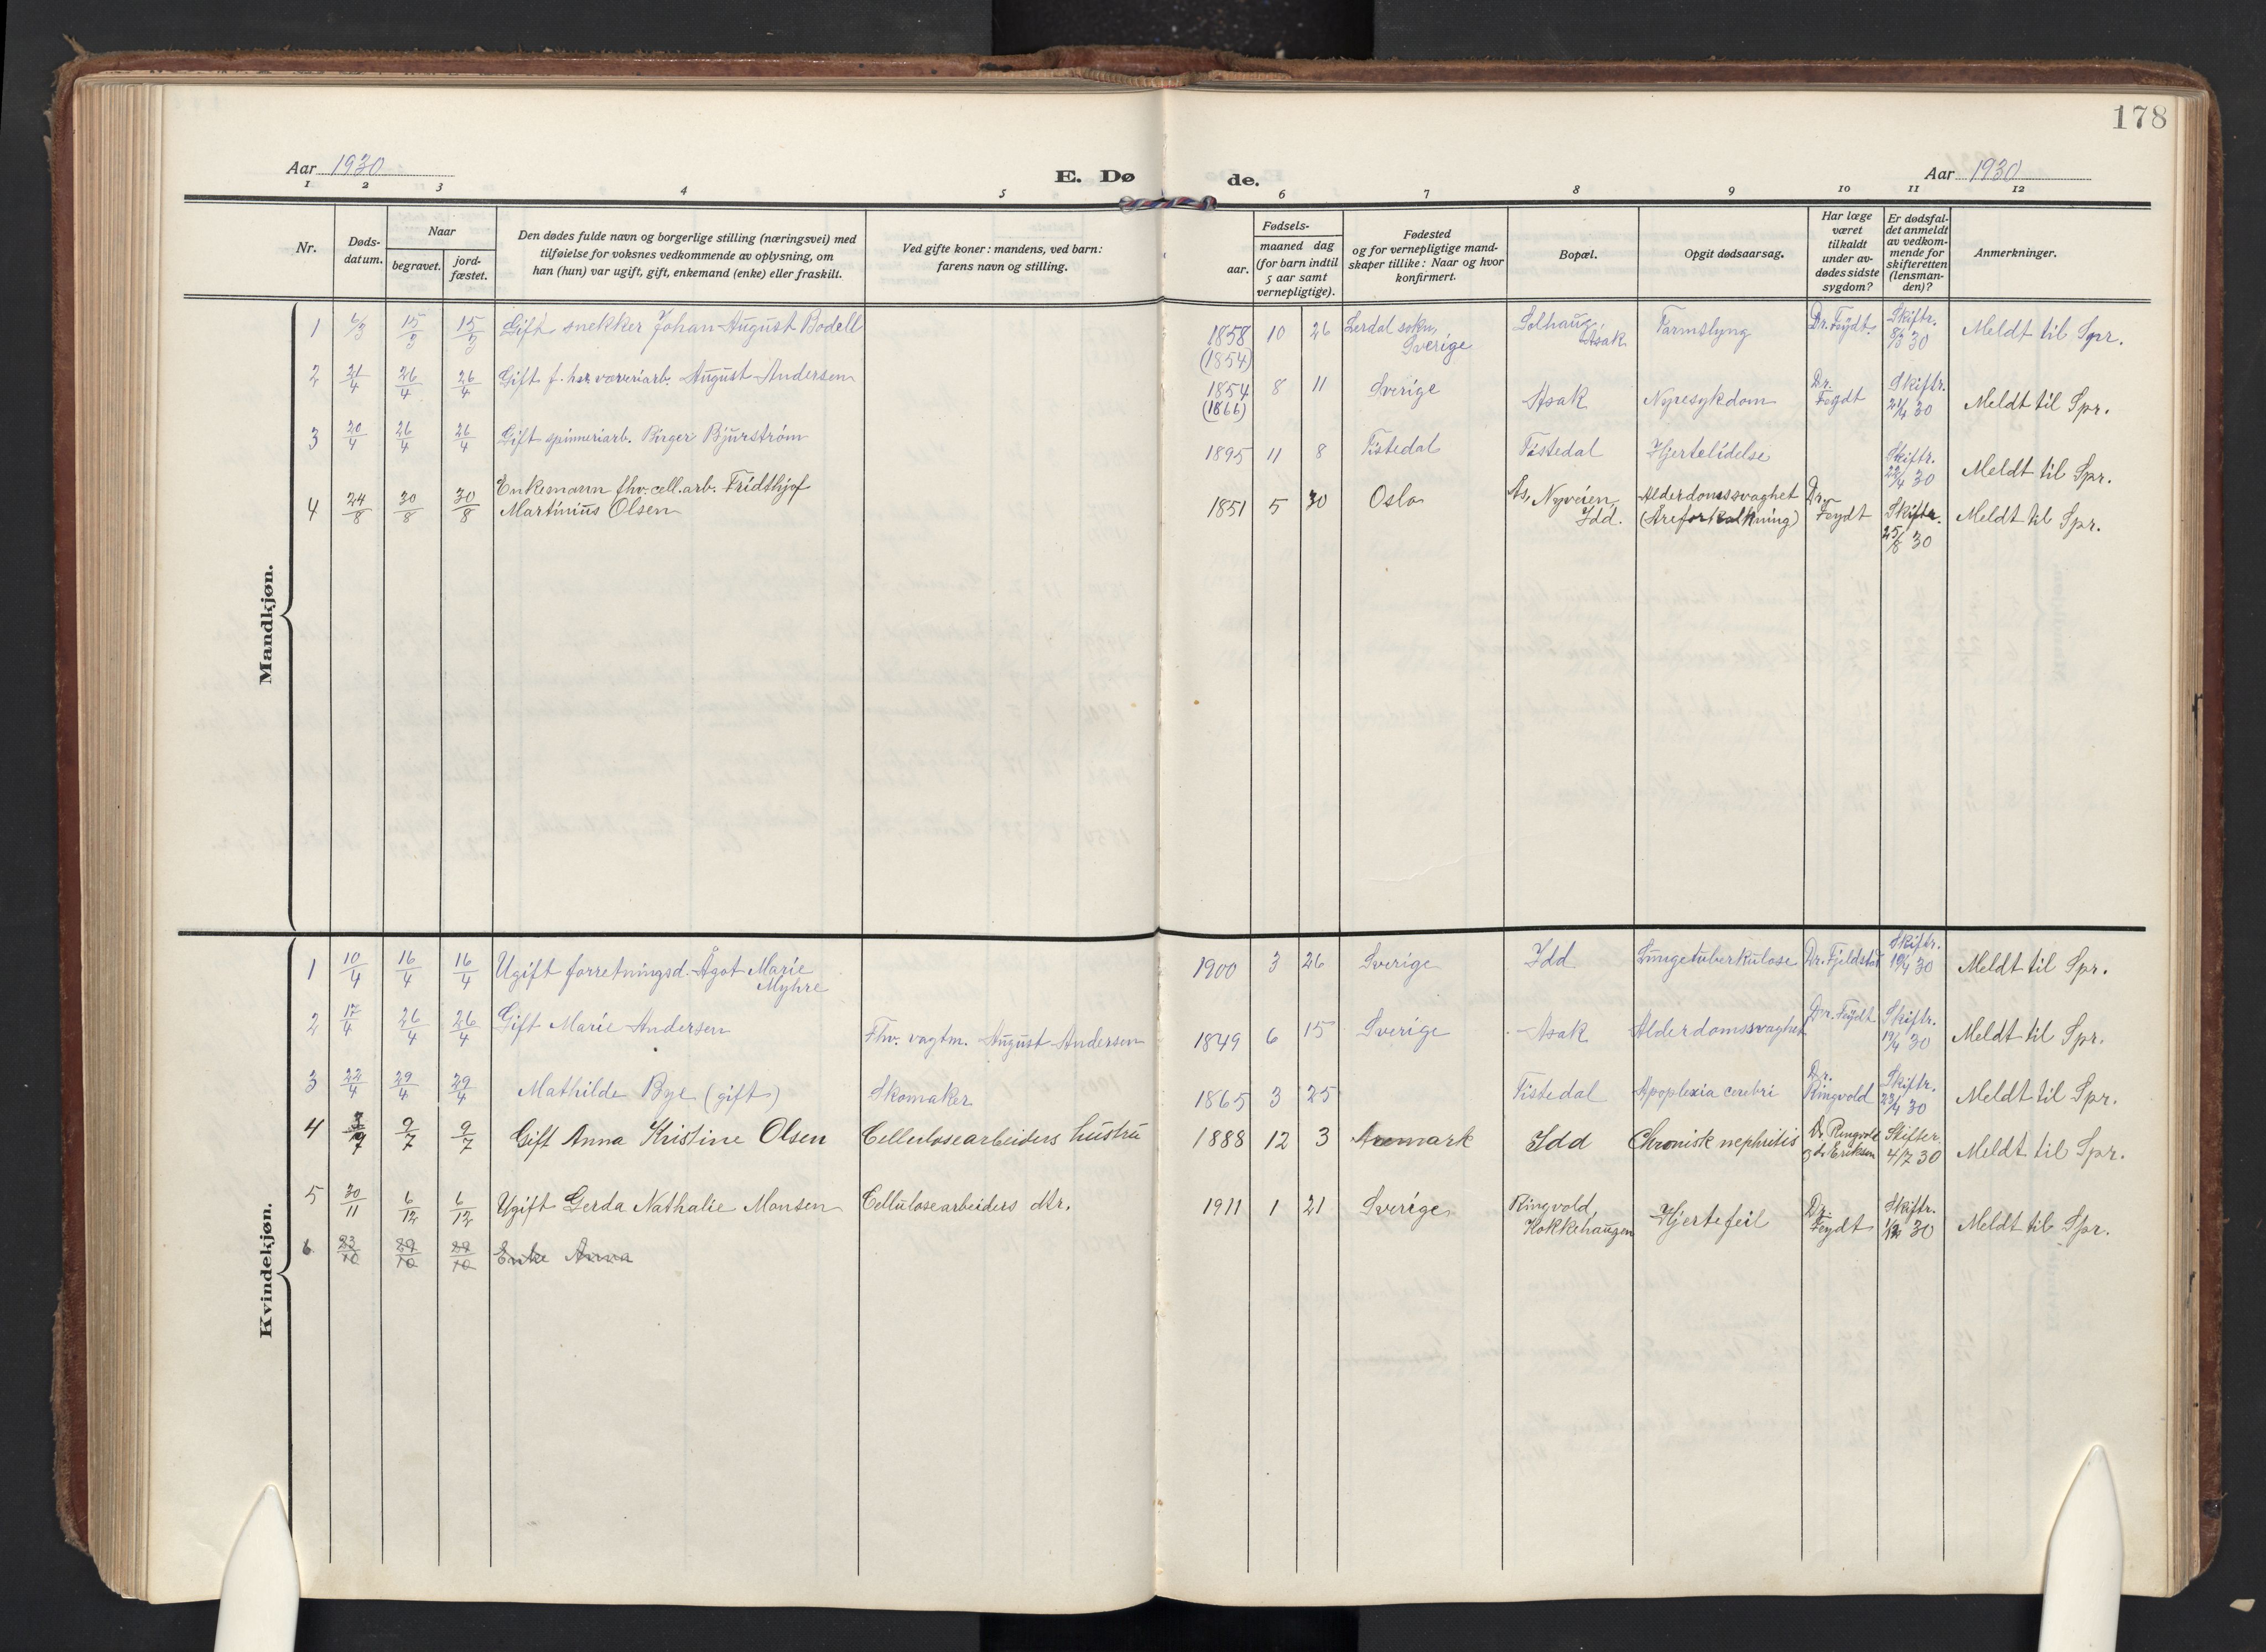 178
Aar 1930
E. Dø de.
Aar 1930
1 2 3 4 5 6 7 8 9 10 11 12
Nr.
Døds-
datum.
Naar
begravet.
jord-
fæstet.
Den dødes fulde navn og borgerlige stilling (næringsvei) med
tilføielse for voksnes vedkommende av oplysning, om
han (hun) var ugift, gift, enkemand (enke) eller fraskilt.
Ved gifte koner: mandens, ved barn:
farens navn og stilling.
Fødsels-
aar.
maaned dag
(for barn indtil
5 aar samt
vernepligtige).
Fødested
og for vernepligtige mand-
skaper tillike: Naar og hvor
konfirmert.
Bopæl.
Opgit dødsaarsag.
Har læge
været
tilkaldt
under av-
dødes sidste
sygdom?
Er dødsfal-
det anmeldt
av vedkom-
mende for
skifteretten
(lensman-
den)?
Anmerkninger.
Mandkjøn.
1 6/3 15/3 15/3 Gift snekker Johan August Bodell 1858 10 26 Lerdal sokn, Solhaug, Tarmslyng Dr. Feydt. Skiftr. Meldt til Spr.
(1854) Sverige Asak 8/3 30
2 21/4 26/4 26/4 Gift f. hsr væveriarb. August Andersen 1854 8 11 Sverige Asak Nyresykdom Dr. Skiftr. Meldt til Spr.
(1866) Feydt 21/4 30
3 20/4 26/4 26/4 Gift spinneriarb. Birger Bjurström 1895 11 8 Tistedal Tistedal Hjertelidelse Skiftr. Meldt til Spr.
22/4 30
Enkemann fhv. cell.arb. Fridthjof
4 24/8 30/8 30/8 Martinius Olsen 1851 5 30 Oslo As, Nyveien, Alderdomssvaghet Dr. Skiftr. Meldt til Spr.
Idd. (Areforkalkning) Feydt 25/8 30
Kvindekjøn.
1 10/4 16/4 16/4 Ugift forretningsd. Ågot Marie 1900 3 26 Sverige Idd Lungetuberkulose Dr. Fjeldstad Skiftr. Meldt til Spr.
Myhre 10/4 30
2 17/4 26/4 26/4 Gift Marie Andersen Fhv. vagtm. August Andersen 1849 6 15 Sverige Asak Alderdomssvaghet Dr. Feydt Skiftr. Meldt til Spr.
19/4 30
3 22/4 29/4 29/4 Mathilde Bye (gift) Skomaker 1865 3 25 Tistedal Apoplexia cerebri Dr. Skiftr. Meldt til Spr.
Ringvold 23/4 30
4 3/7 9/7 9/7 Gift Anna Kristine Olsen Cellulosearbeiders hustru 1888 12 3 Aremark Idd Chronisk nephritis Dr. Ringvold Skifter. Meldt til Spr.
og dr Eriksen 4/7 30
5 30/11 6/12 6/12 Ugift Gerda Nathalie Monsen Cellulosearbeiders dtr. 1911 1 21 Sverige Ringvold, Hjertefeil Dr. Skiftr. Meldt til Spr.
Kokkehaugen Feydt 1/12 30
6 23/10 29/10 29/10 Enke Anna